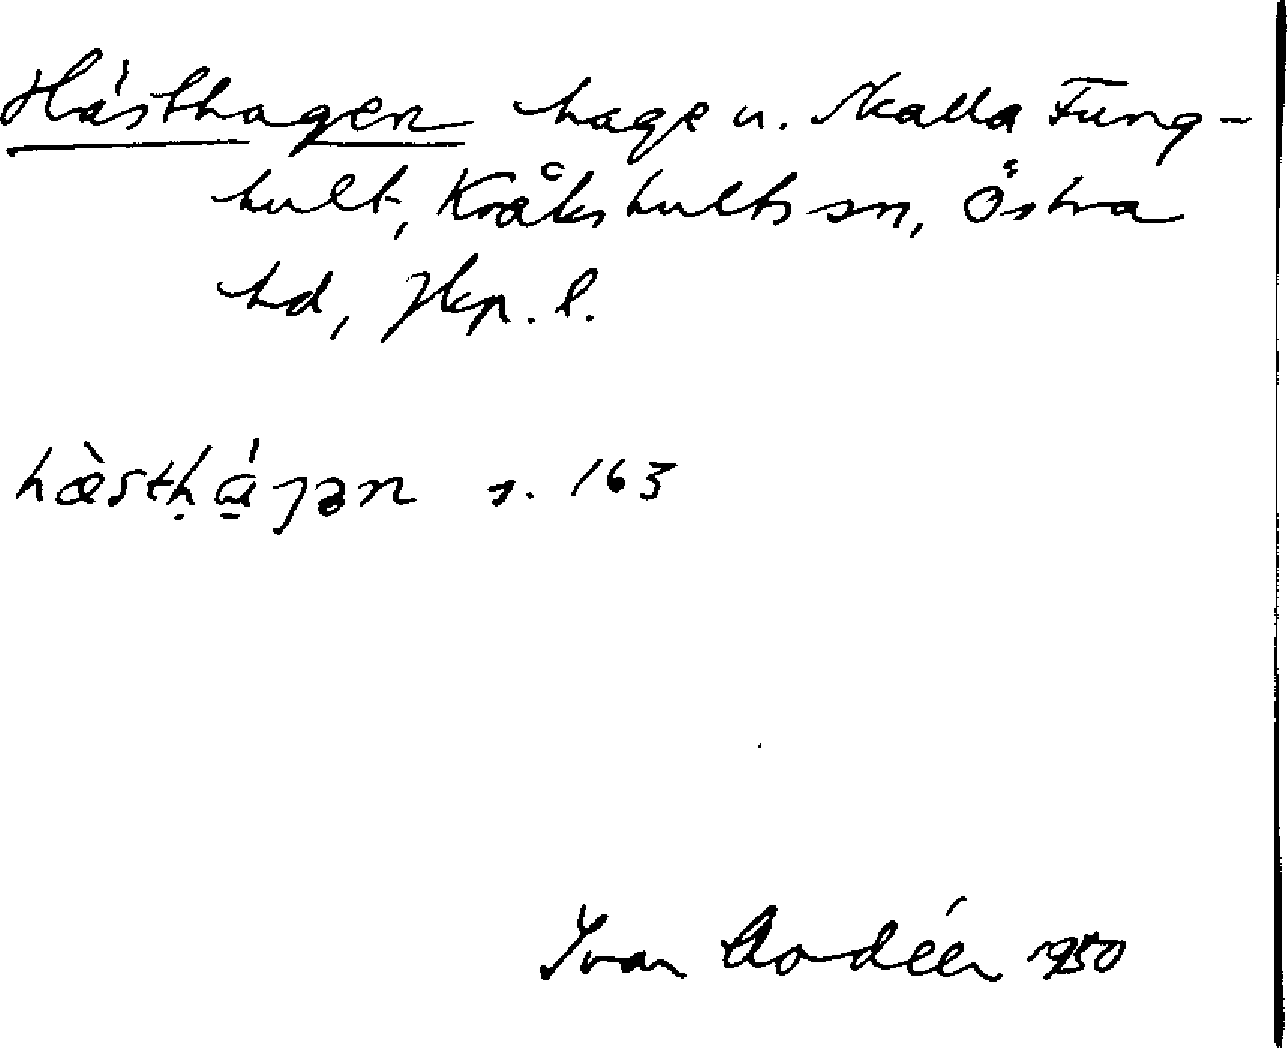 Hästhagen hage u. Skalla Fung-
hult, Kråkshults sn, Östra
hd, Jkp. l.
hæ̀stḥɑ̱́ȷən s. 163
Ivar 1950